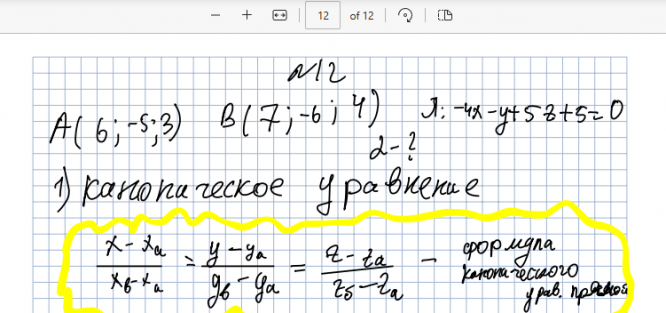 12 of 12
N12
A(6;-5;3) B(7;-6;4) Л: -4x-y+5z+5=0
d-?
1) каноническое уравнение
(x-xa)/(xb-xa) = (y-ya)/(yb-ya) = (z-za)/(zb-za) - формула
канонического
урав. прямой